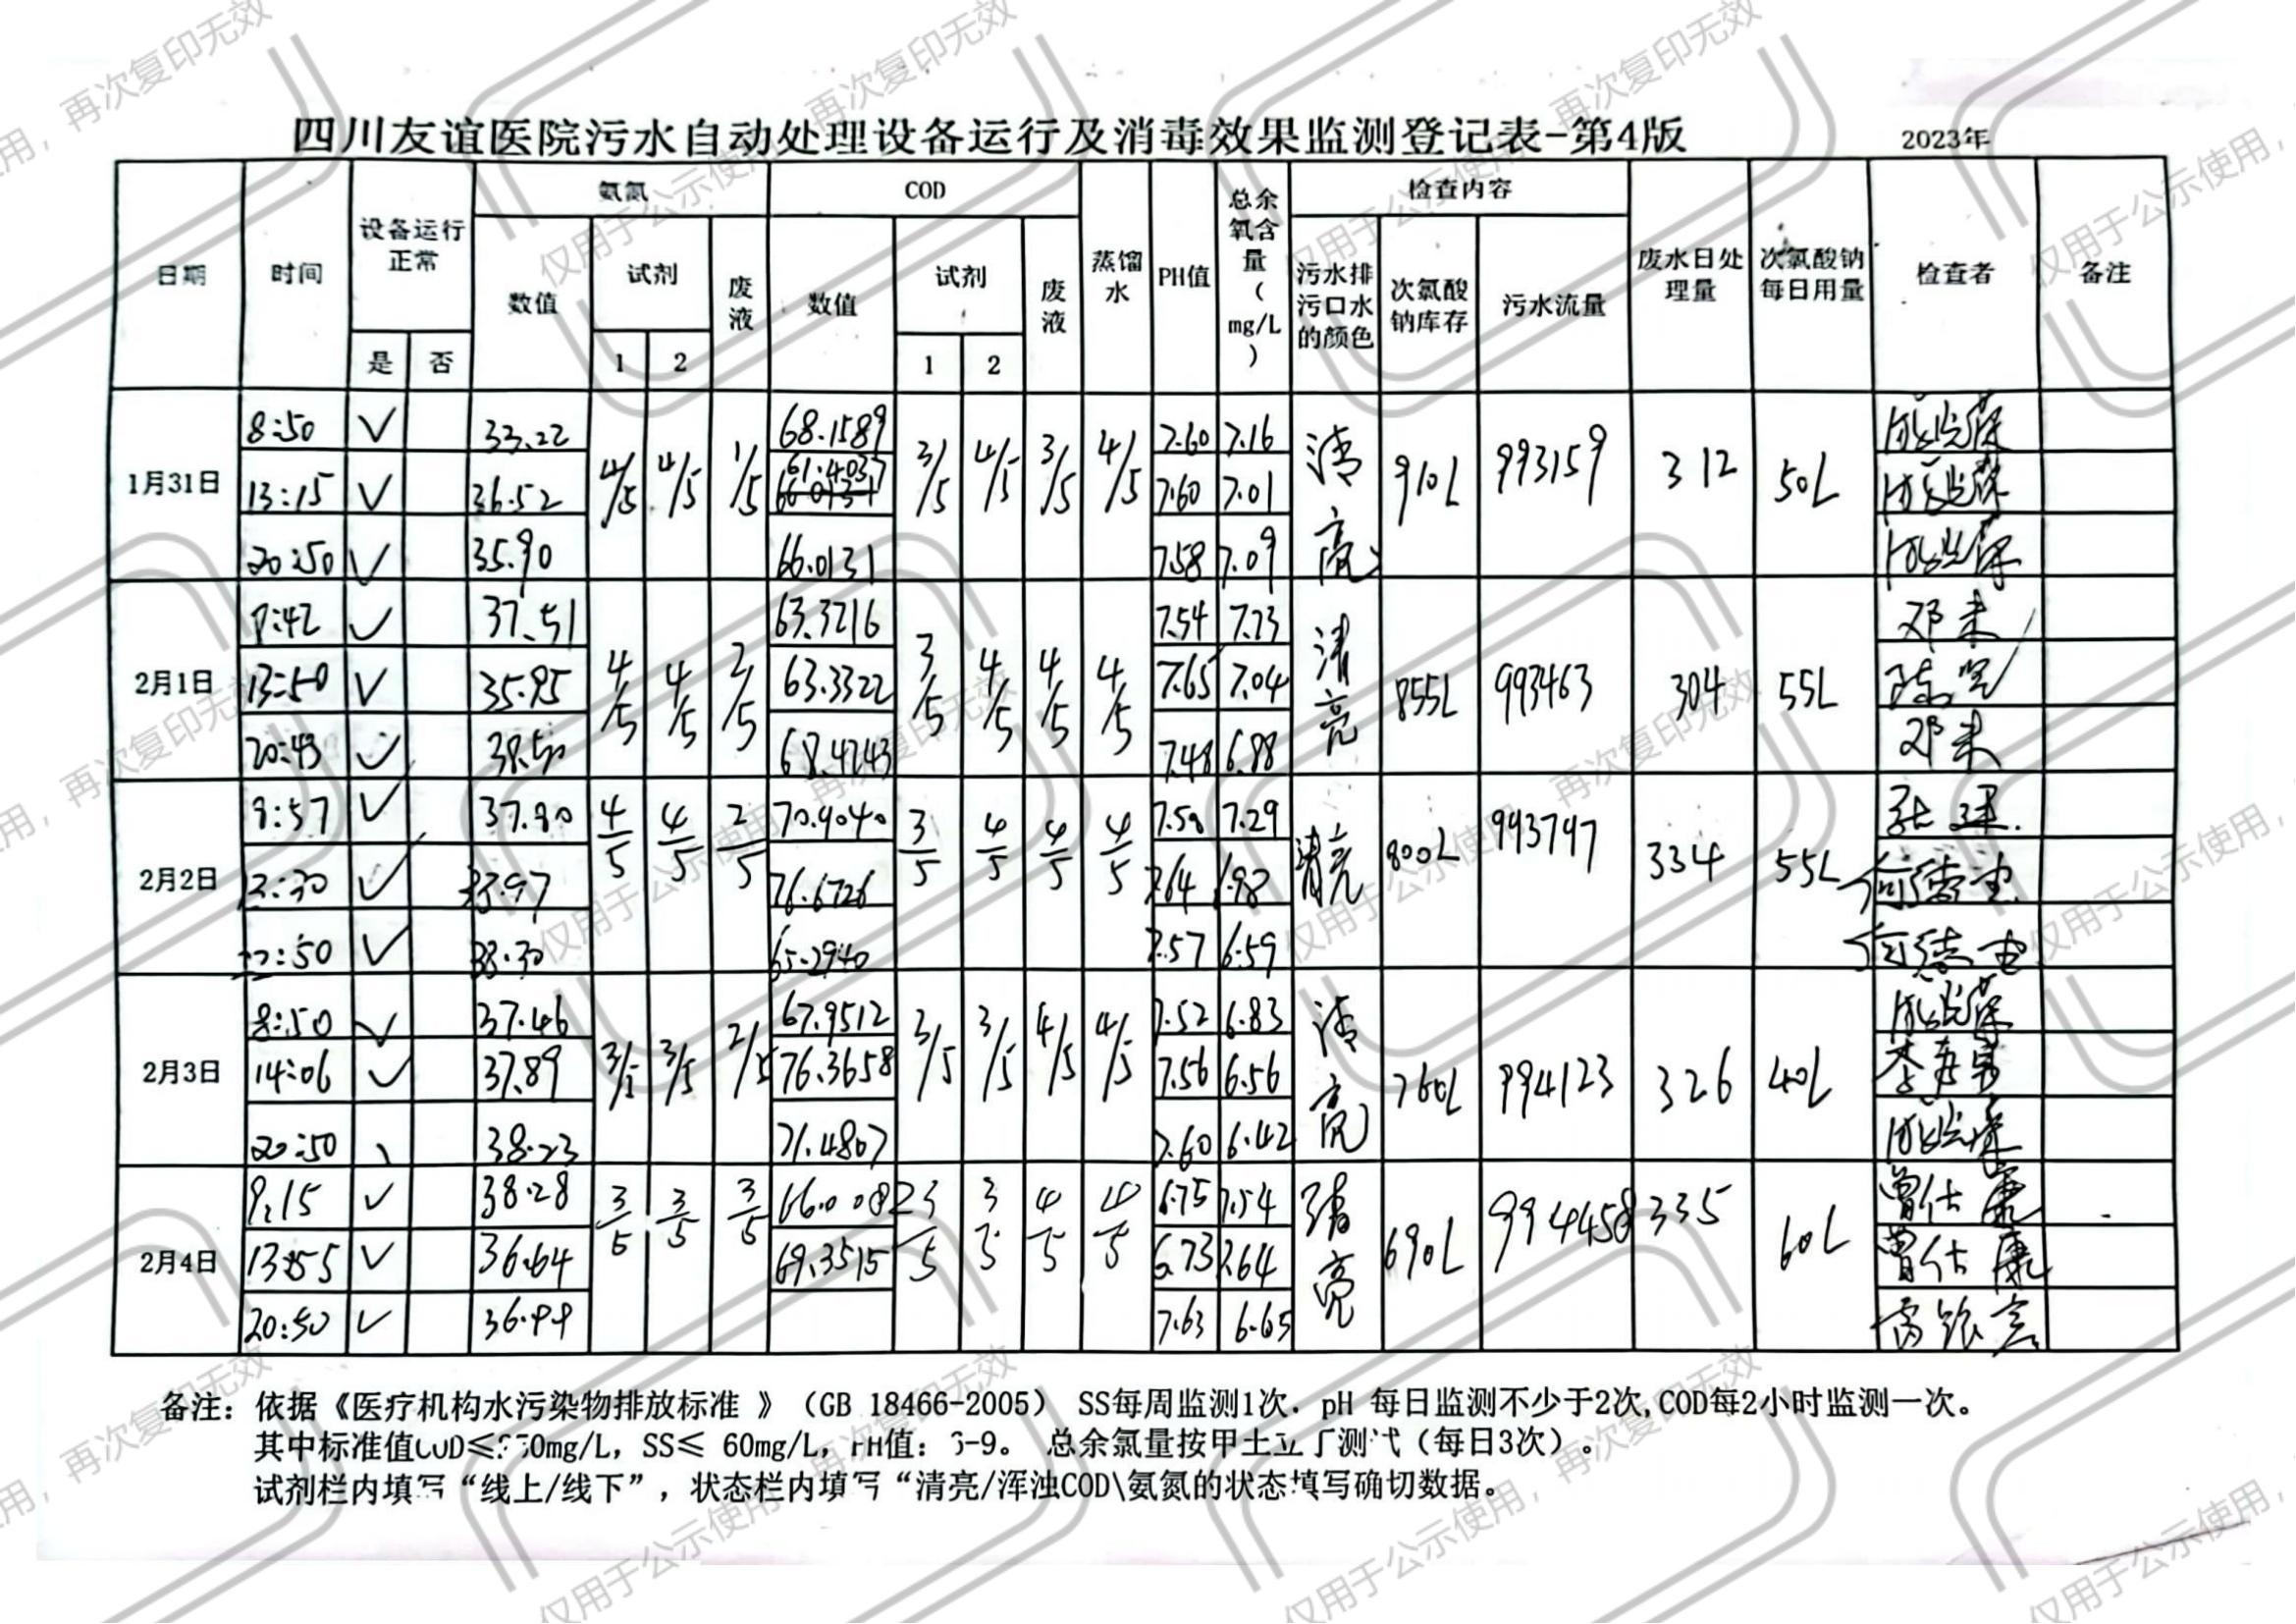 四川友谊医院污水自动处理设备运行及消毒效果监测登记表-第4版 2023年
日期 时间 设备运行正常 是 否 氨氮 数值 试剂 1 2 废液 COD 数值 试剂 1 2 废液 蒸馏水 PH值 总余氧含量(mg/L) 检查内容 污水排污口水的颜色 次氯酸钠库存 污水流量 废水日处理量 次氯酸钠每日用量 检查者 备注
1月31日 4/5 4/5 1/5 3/5 4/5 3/5 4/5 清亮 910L 993159 312 50L
8:50 ✓ 33.22 68.1589 7.60 7.16
13:15 ✓ 36.52 61.4037 7.60 7.01
20:50 ✓ 35.90 66.0131 7.58 7.09
2月1日 4/5 4/5 2/5 3/5 4/5 4/5 4/5 清亮 855L 993463 304 55L
9:42 ✓ 37.51 63.3216 7.54 7.23 邓末
13:50 ✓ 35.95 63.3322 7.65 7.04
20:43 ✓ 38.50 68.4243 7.48 6.88 邓末
2月2日 4/5 4/5 2/5 3/5 4/5 4/5 4/5 清亮 800L 993797 334 55L
✓ 37.90 70.9040 7.29
✓ 76.6726 7.64
✓ 38.30 65.2940 7.57 6.59
2月3日 3/5 2/5 3/5 3/5 4/5 4/5 清亮 760L 994123 326 40L
8:50 ✓ 37.46 67.9512 7.52 6.83
14:06 ✓ 37.89 76.3658 7.56 6.56
20:50 38.23 71.4807 7.60 6.42
2月4日 3/5 3/5 3/5 3/5 3/5 4/5 4/5 清亮 690L 994458 335 60L
9:15 ✓ 38.28 6.75 7.54 曾仕康
13:55 ✓ 36.64 69.3515 6.73 7.64 曾仕康
20:50 ✓ 36.99 7.63 6.65
备注：依据《医疗机构水污染物排放标准 》（GB 18466-2005） SS每周监测1次. pH 每日监测不少于2次,COD每2小时监测一次。
其中标准值COD≤250mg/L，SS≤ 60mg/L，PH值：6-9。 总余氯量按甲土立丁测试（每日3次）。
试剂栏内填写“线上/线下”，状态栏内填写“清亮/浑浊COD\氨氮的状态填写确切数据。
仅用于公示使用，再次复印无效